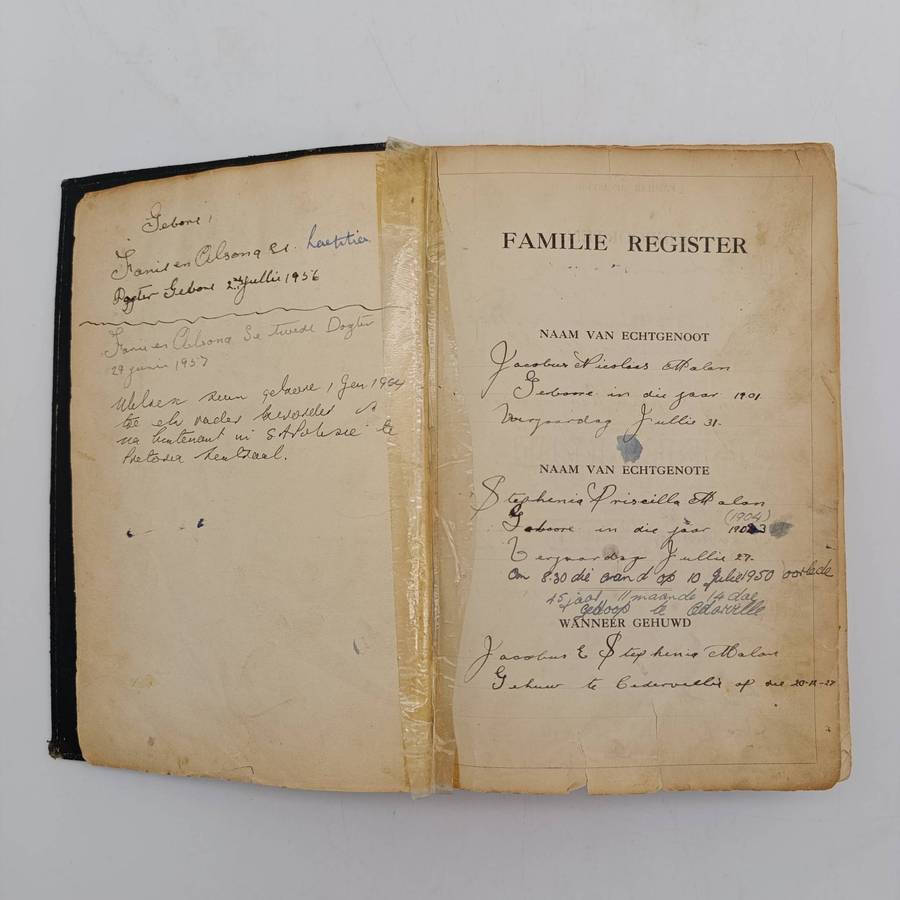 Gebore,
Fanie en Alsona se. Laetitia
Dogter Gebore 2 Jullie 1956
Fanie en Alsona Se twede Dogter
29 Junie 1957
seun gebore 1 Jen 1964
te
na luitenant in S A Polisie te
Pretoria Sentraal.
FAMILIE REGISTER
NAAM VAN ECHTGENOOT
Jacobus Nicolaas Malan
Geboore in die jaar 1901
Verjaardag Jullie 31.
NAAM VAN ECHTGENOTE
Stephenia Priscilla Malan
(1904)
Geboore in die jaar
Verjaardag Jullie 27.
Om 8.30 die aand op 10 Julie 1950 oorlede
45 jaar 11 maande 14 dae
gedoop te
WANNEER GEHUWD
Jacobus E Stephenia Malan
Gehuw te Cederville op die 20-12-27